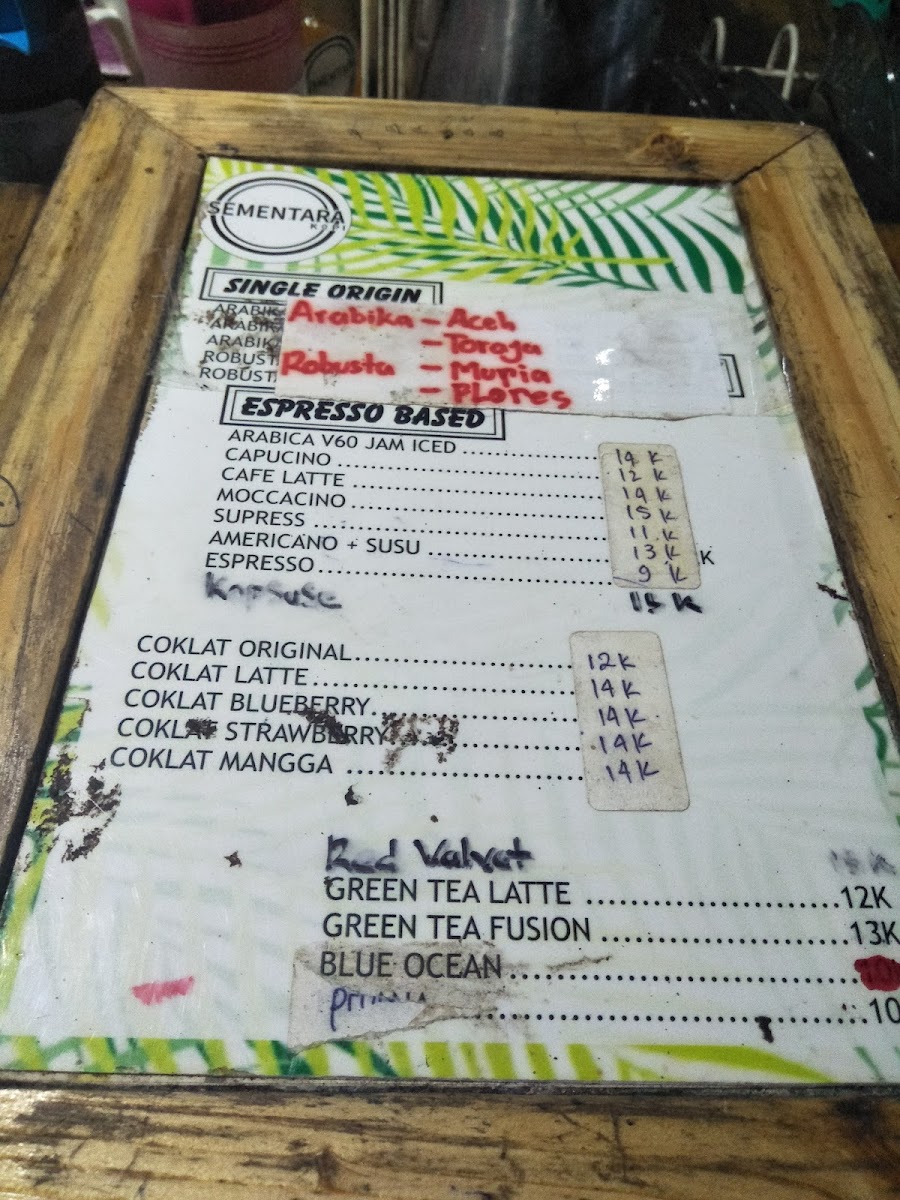 SEMENTARA
KOPI
SINGLE ORIGIN
Arabika - Aceh
- Toraja
Robusta - Muria
- FLores
ARABIK
ARABIK
ARABIK
ROBUST
ROBUSTA
ESPRESSO BASED
ARABICA V60 JAM ICED 14 K
CAPUCINO 12 K
CAFE LATTE 14 K
MOCCACINO 15 K
SUPRESS 11 K
AMERICANO + SUSU 13 K K
ESPRESSO 9 K
KopSuSe 15 K
COKLAT ORIGINAL 12K
COKLAT LATTE 14K
COKLAT BLUEBERRY 14K
COKLAT STRAWBERRY 14K
COKLAT MANGGA 14K
Red Valvet 15 K
GREEN TEA LATTE 12K
GREEN TEA FUSION 13K
BLUE OCEAN
10